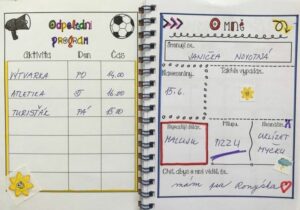 Odpolední
program
Aktivita Den Čas
VÝTVARKA PO 14.00
ATLETICA ST 16.00
TURISŤÁK PÁ 15.00
O mně
Jmenuji se:
JANIČKA NOVOTNÁ
Narozeniny: Takhle vypadám:
15.6.
Nejradši dělám: Miluju: Nesnáším:
MALUJU PIZZU UKLÍZET
MYČKU
Chci, abys o mně věděl, že:
mám psa Ronyška